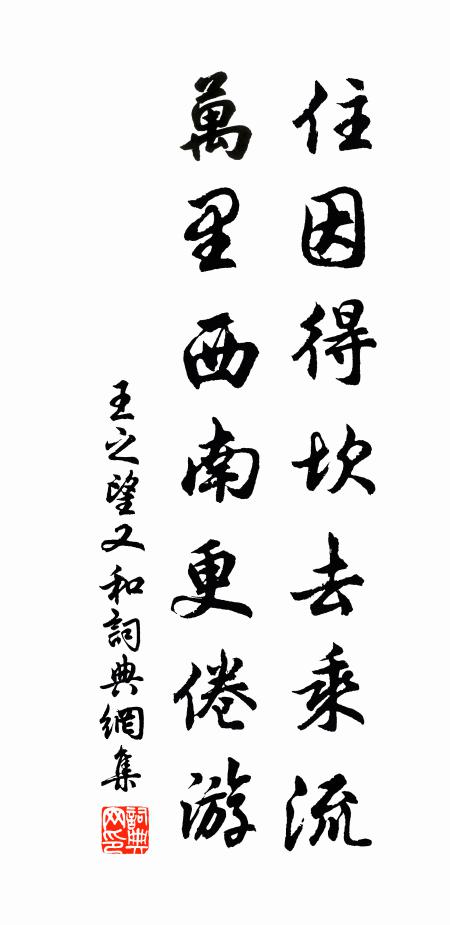 住因得坎去乘流
萬里西南更倦游
王之望又和詞典網集
詞典網印